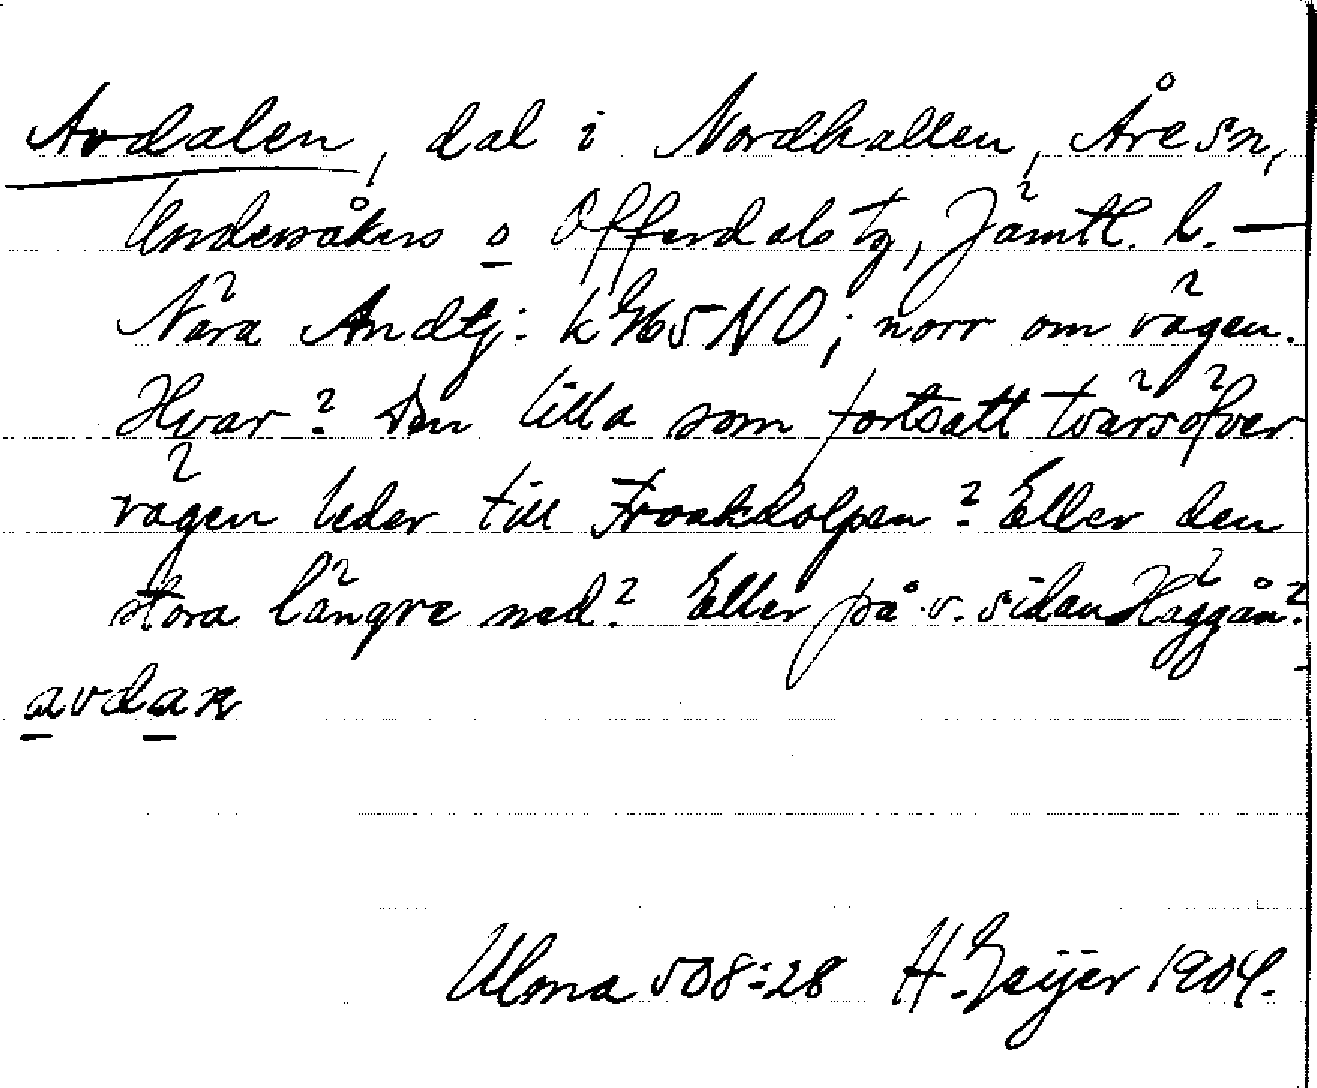 Avdalen, dal i Nordhallen, Åre sn,
Undersåkers o Offerdals tg, Jämtl. l. —
Nära Andtj: k 9765 NO; norr om vägen.
Hvar? Den lilla som fortsatt tvärsöfver
vägen leder till Froakdolpen? Eller den
stora längre ned? Eller på v. sidan Häggån?
avdan
Ulma 508:28 H. Geijer 1904.